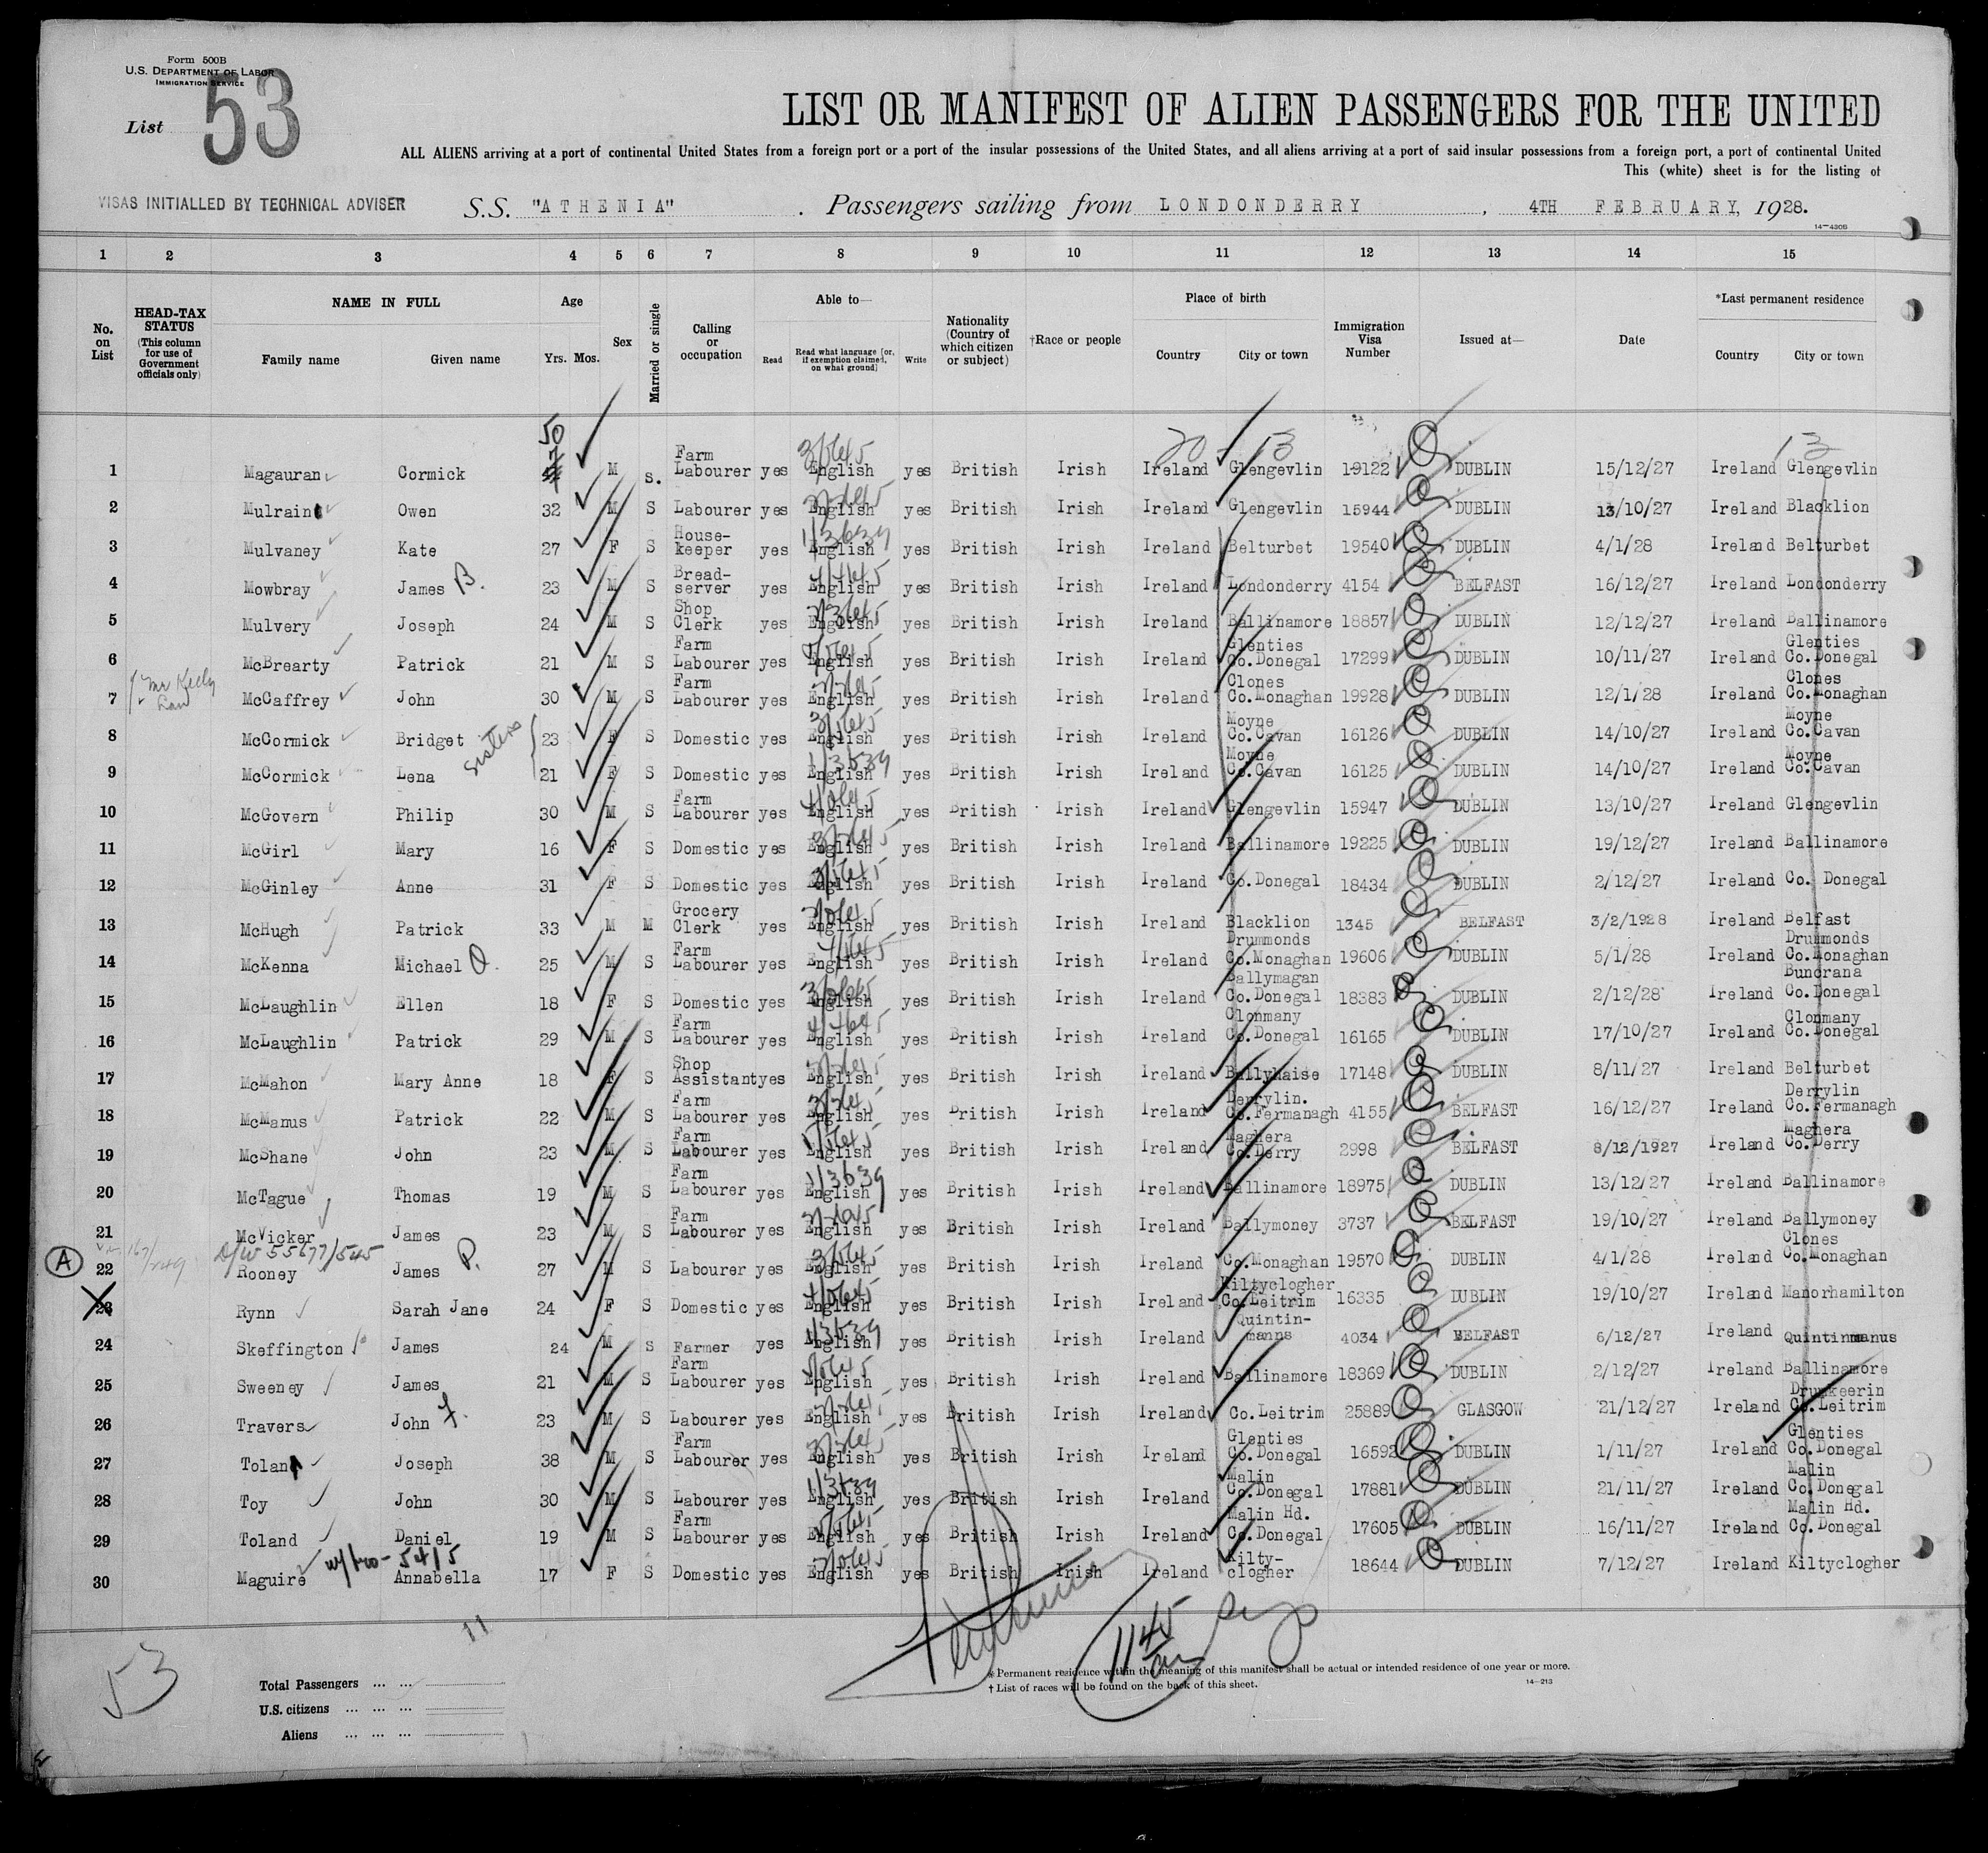 Form 500B
U.S. DEPARTMENT OF LABOR
IMMIGRATION SERVICE
List 53
LIST OR MANIFEST OF ALIEN PASSENGERS FOR THE UNITED
ALL ALIENS arriving at a port of continental United States from a foreign port or a port of the insular possessions of the United States, and all aliens arriving at a port of said insular possessions from a foreign port, a port of continental United
This (white) sheet is for the listing of
VISAS INITIALLED BY TECHNICAL ADVISER
S.S. "ATHENIA" . Passengers sailing from LONDONDERRY , 4TH FEBRUARY, 1928.
14-430B
1 2 3 4 5 6 7 8 9 10 11 12 13 14 15
No. on List
HEAD-TAX STATUS (This column for use of Government officials only)
NAME IN FULL
Family name Given name
Age
Yrs. Mos.
Sex
Married or single
Calling or occupation
Able to—
Read
Read what language [or, if exemption claimed, on what ground]
Write
Nationality (Country of which citizen or subject)
†Race or people
Place of birth
Country City or town
Immigration Visa Number
Issued at—
Date
*Last permanent residence
Country City or town
50
20 13 13
1 Magauran Cormick M s. Farm Labourer yes English yes British Irish Ireland Glengevlin 19122 DUBLIN 15/12/27 Ireland Glengevlin
2 Mulrain Owen 32 M S Labourer yes English yes British Irish Ireland Glengevlin 15944 DUBLIN 13/10/27 Ireland Blacklion
3 Mulvaney Kate 27 F S House-keeper yes English yes British Irish Ireland Belturbet 19540 DUBLIN 4/1/28 Ireland Belturbet
4 Mowbray James B. 23 M S Bread-server yes English yes British Irish Ireland Londonderry 4154 BELFAST 16/12/27 Ireland Londonderry
5 Mulvery Joseph 24 M S Shop Clerk yes English yes British Irish Ireland Ballinamore 18857 DUBLIN 12/12/27 Ireland Ballinamore
6 McBrearty Patrick 21 M S Farm Labourer yes English yes British Irish Ireland Glenties Co.Donegal 17299 DUBLIN 10/11/27 Ireland Glenties Co.Donegal
7 McCaffrey John 30 M S Farm Labourer yes English yes British Irish Ireland Clones Co.Monaghan 19928 DUBLIN 12/1/28 Ireland Clones Co.Monaghan
8 McCormick Bridget sisters 23 F S Domestic yes English yes British Irish Ireland Moyne Co.Cavan 16126 DUBLIN 14/10/27 Ireland Moyne Co.Cavan
9 McCormick Lena 21 F S Domestic yes English yes British Irish Ireland Moyne Co.Cavan 16125 DUBLIN 14/10/27 Ireland Moyne Co.Cavan
10 McGovern Philip 30 M S Farm Labourer yes English yes British Irish Ireland Glengevlin 15947 DUBLIN 13/10/27 Ireland Glengevlin
11 McGirl Mary 16 F S Domestic yes English yes British Irish Ireland Ballinamore 19225 DUBLIN 19/12/27 Ireland Ballinamore
12 McGinley Anne 31 F S Domestic yes English yes British Irish Ireland Co.Donegal 18434 DUBLIN 2/12/27 Ireland Co. Donegal
13 McHugh Patrick 33 M M Grocery Clerk yes English yes British Irish Ireland Blacklion 1345 BELFAST 3/2/1928 Ireland Belfast
14 McKenna Michael O. 25 M S Farm Labourer yes English yes British Irish Ireland Drummonds Co.Monaghan 19606 DUBLIN 5/1/28 Ireland Drummonds Co.Monaghan
15 McLaughlin Ellen 18 F S Domestic yes English yes British Irish Ireland Ballymagan Co.Donegal 18383 DUBLIN 2/12/28 Ireland Buncrana Co.Donegal
16 McLaughlin Patrick 29 M S Farm Labourer yes English yes British Irish Ireland Clonmany Co.Donegal 16165 DUBLIN 17/10/27 Ireland Clonmany Co.Donegal
17 McMahon Mary Anne 18 F S Shop Assistant yes English yes British Irish Ireland Ballyhaise 17148 DUBLIN 8/11/27 Ireland Belturbet
18 McManus Patrick 22 M S Farm Labourer yes English yes British Irish Ireland Derrylin. Co.Fermanagh 4155 BELFAST 16/12/27 Ireland Derrylin Co.Fermanagh
19 McShane John 23 M S Farm Labourer yes English yes British Irish Ireland Maghera Co.Derry 2998 BELFAST 8/12/1927 Ireland Maghera Co.Derry
20 McTague Thomas 19 M S Farm Labourer yes English yes British Irish Ireland Ballinamore 18975 DUBLIN 13/12/27 Ireland Ballinamore
21 McVicker James 23 M S Farm Labourer yes English yes British Irish Ireland Ballymoney 3737 BELFAST 19/10/27 Ireland Ballymoney
55677/545
A 22 Rooney James P. 27 M S Labourer yes English yes British Irish Ireland Co.Monaghan 19570 DUBLIN 4/1/28 Ireland Clones Co.Monaghan
23 Rynn Sarah Jane 24 F S Domestic yes English yes British Irish Ireland Kiltyclogher Co.Leitrim 16335 DUBLIN 19/10/27 Ireland Manorhamilton
24 Skeffington James 24 M S Farmer yes English yes British Irish Ireland Quintin-manns 4034 BELFAST 6/12/27 Ireland Quintinmanus
25 Sweeney James 21 M S Farm Labourer yes English yes British Irish Ireland Ballinamore 18369 DUBLIN 2/12/27 Ireland Ballinamore
26 Travers John F. 23 M S Labourer yes English yes British Irish Ireland Co.Leitrim 25889 GLASGOW 21/12/27 Ireland Drumkeerin Co.Leitrim
27 Tolan Joseph 38 M S Farm Labourer yes English yes British Irish Ireland Glenties Co.Donegal 16592 DUBLIN 1/11/27 Ireland Glenties Co.Donegal
28 Toy John 30 M S Labourer yes English yes British Irish Ireland Malin Co.Donegal 17881 DUBLIN 21/11/27 Ireland Malin Co.Donegal
29 Toland Daniel 19 M S Farm Labourer yes English yes British Irish Ireland Malin Hd. Co.Donegal 17605 DUBLIN 16/11/27 Ireland Malin Hd. Co.Donegal
5415
30 Maguire Annabella 17 F S Domestic yes English yes British Irish Ireland Kilty-clogher 18644 DUBLIN 7/12/27 Ireland Kiltyclogher
11
53
1145
Total Passengers ... ...
U.S. citizens ... ... ...
Aliens ... ... ...
* Permanent residence within the meaning of this manifest shall be actual or intended residence of one year or more.
† List of races will be found on the back of this sheet.
14-213